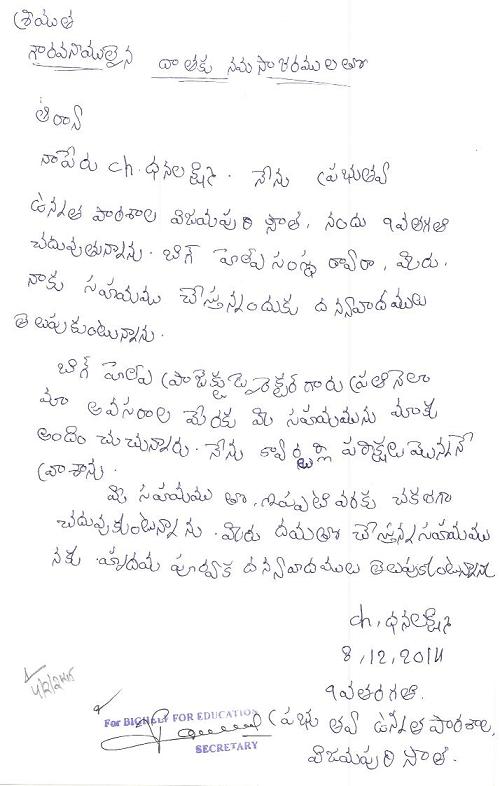 శ్రీయుత
గౌరవనీయులైన దాతకు నమస్కారములతో
నా పేరు ch. ధనలక్ష్మి. నేను ప్రభుత్వ
ఉన్నత పాఠశాల విజయపురి సౌత్, నందు 9వతరగతి
చదువుతున్నాను. బిగ్ హెల్ప్ సంస్థ ద్వారా, మీరు.
నాకు సహయము చేస్తున్నందుకు దన్యవాదములు
తెలుపుకుంటున్నాను.
బిగ్ హెల్ప్ ప్రాజెక్టు డైరెక్టర్ గారు ప్రతినెలా
మా అవసరాల మేరకు మీ సహయమును మాకు
అందించుచున్నారు. నేను క్వార్టర్లీ పరీక్షలు మొన్ననే
వ్రాశాను.
మీ సహయము తో, ఇప్పటి వరకు చక్కగా
చదువుకుంటున్నాను. మీరు దయతో చేస్తున్న సహయము
నకు హృదయ పూర్వక దన్యవాదములు తెలుపుకుంటున్నాను
ch. ధనలక్ష్మి
8,12,2014
9వతరగతి.
For BIGHELP FOR EDUCATION
ప్రభుత్వ ఉన్నత పాఠశాల,
SECRETARY
విజయపురి సౌత్.